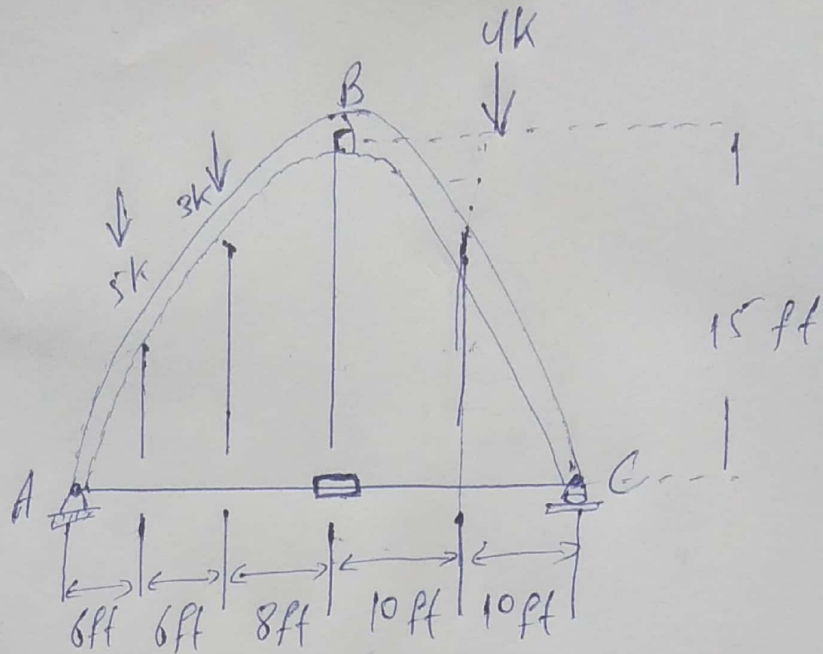 4K
B
3K
5K
15 ft
A
C
6ft 6ft 8ft 10ft 10ft